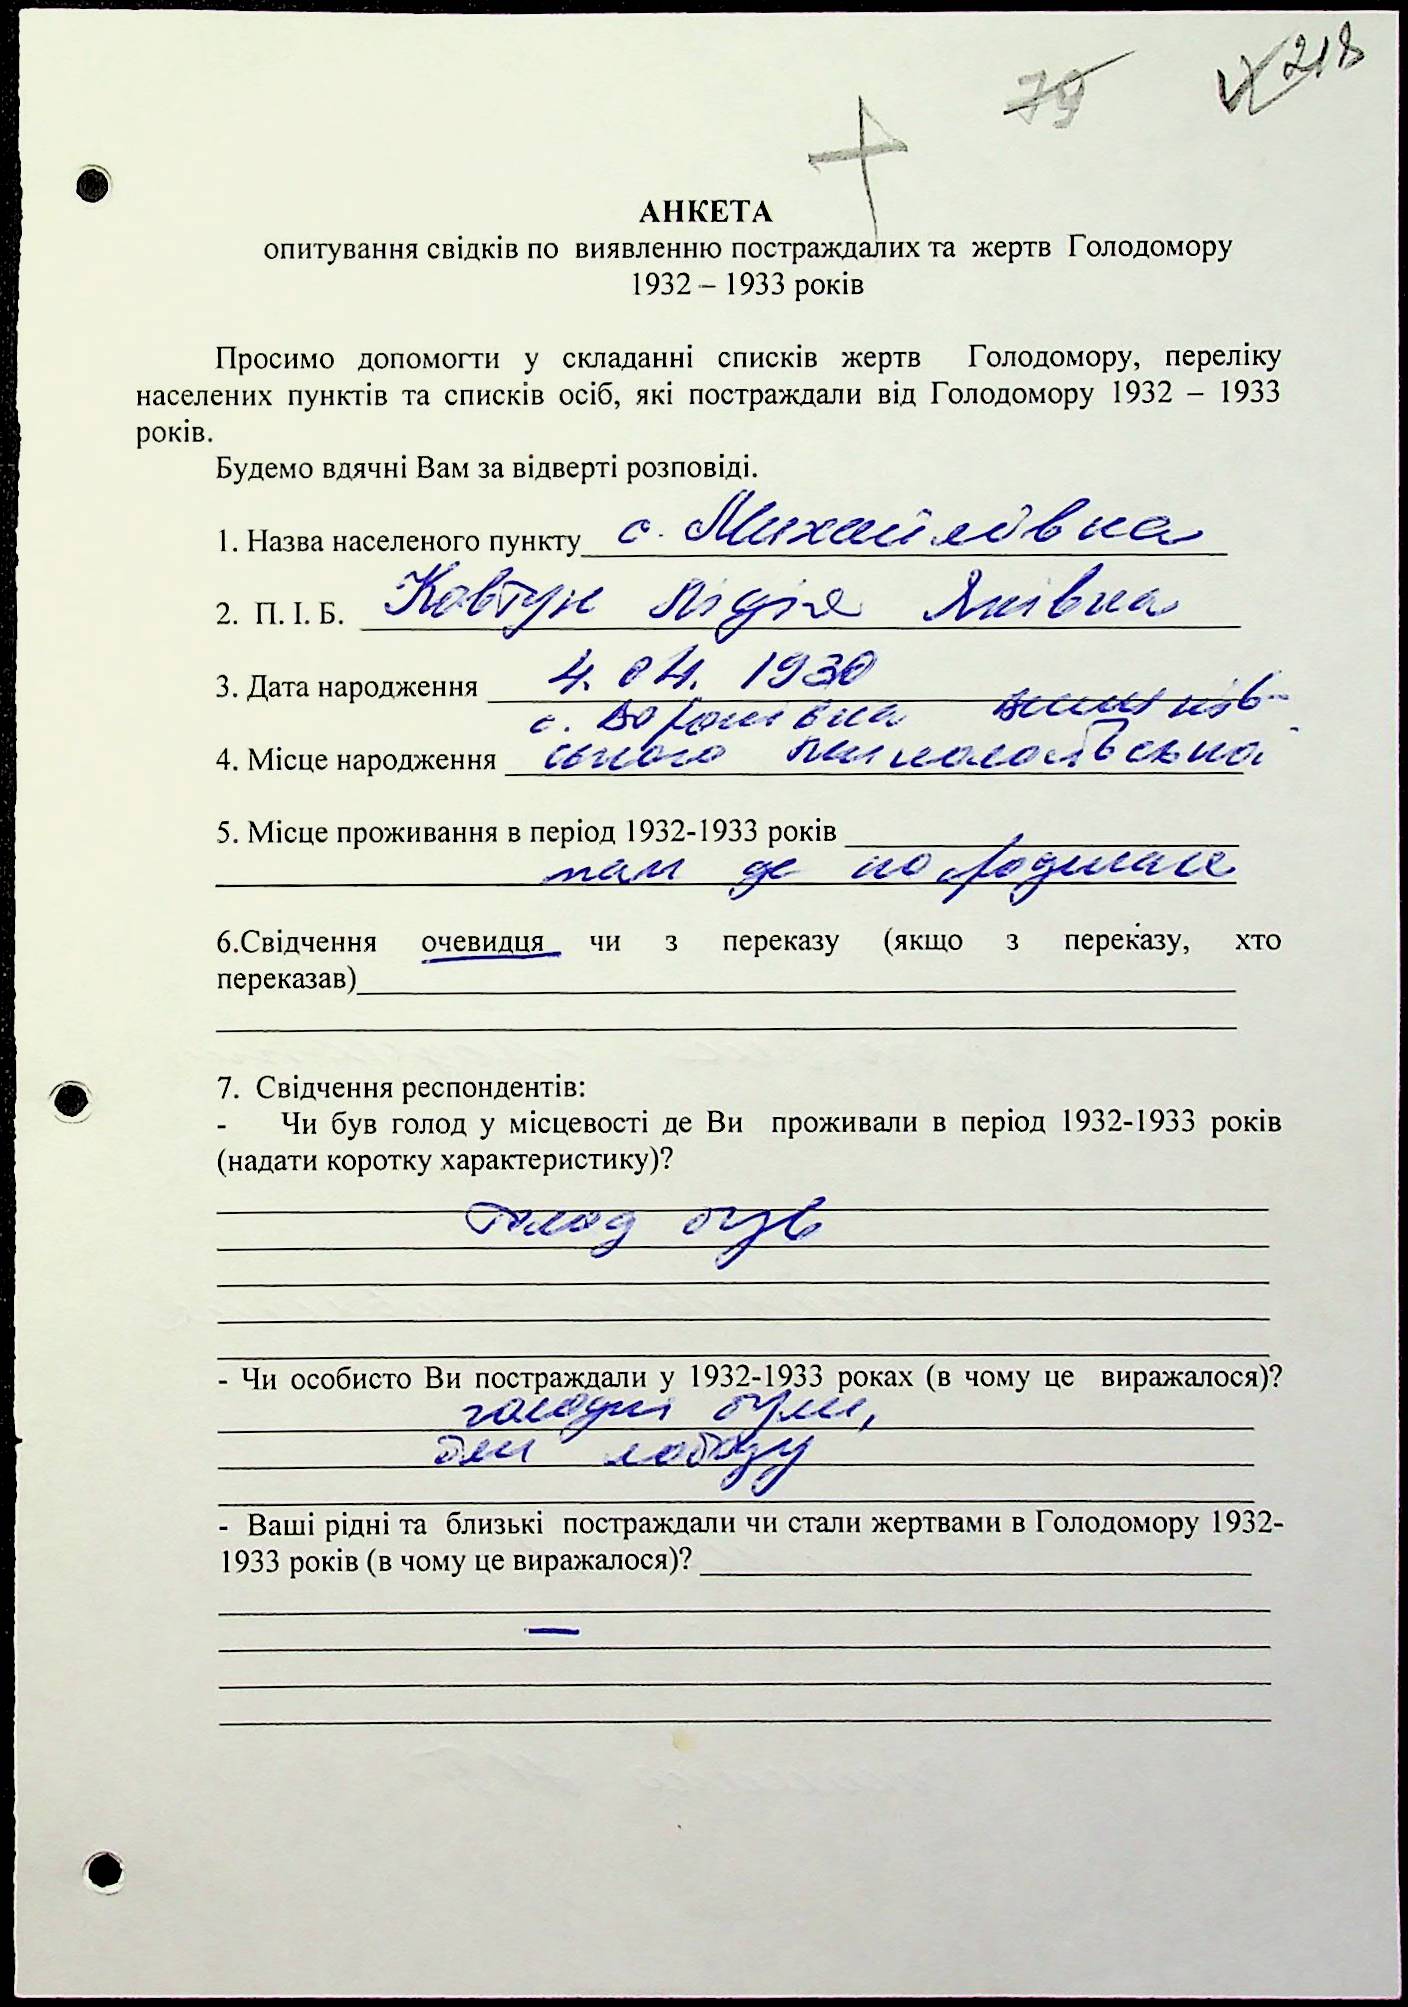 79 218
АНКЕТА
опитування свідків по виявленню постраждалих та жертв Голодомору
1932 – 1933 років
Просимо допомогти у складанні списків жертв Голодомору, переліку
населених пунктів та списків осіб, які постраждали від Голодомору 1932 – 1933
років.
Будемо вдячні Вам за відверті розповіді.
1. Назва населеного пункту с. Михайлівка
2. П. І. Б. Ковтун Лідія Яківна
3. Дата народження 4.04.1930
с. Воронівка
4. Місце народження
5. Місце проживання в період 1932-1933 років
там де народилася
6.Свідчення очевидця чи з переказу (якщо з переказу, хто
переказав)
7. Свідчення респондентів:
- Чи був голод у місцевості де Ви проживали в період 1932-1933 років
(надати коротку характеристику)?
Голод був
- Чи особисто Ви постраждали у 1932-1933 роках (в чому це виражалося)?
голодні були,
їли лободу
- Ваші рідні та близькі постраждали чи стали жертвами в Голодомору 1932-
1933 років (в чому це виражалося)?
—